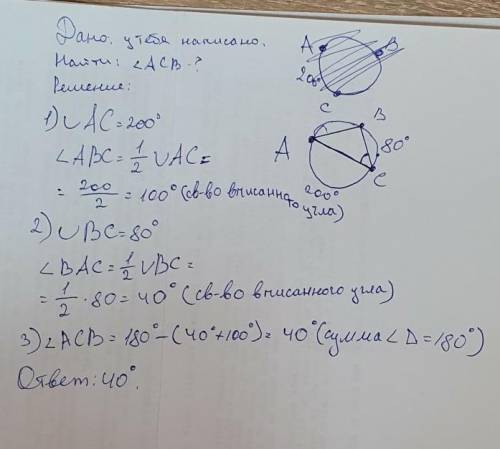 Дано: у тебя написано.
Найти: ∠ACB-?
Решение:
A B
200°
C
1) ∪AC=200°
∠ABC=1/2 ∪AC=
= 200/2 = 100° (св-во вписанного угла)
B
A
80°
C
200°
2) ∪BC=80°
∠BAC=1/2 ∪BC=
= 1/2 · 80 = 40° (св-во вписанного угла)
3) ∠ACB = 180° - (40°+100°) = 40° (сумма ∠ Δ = 180°)
Ответ: 40°.